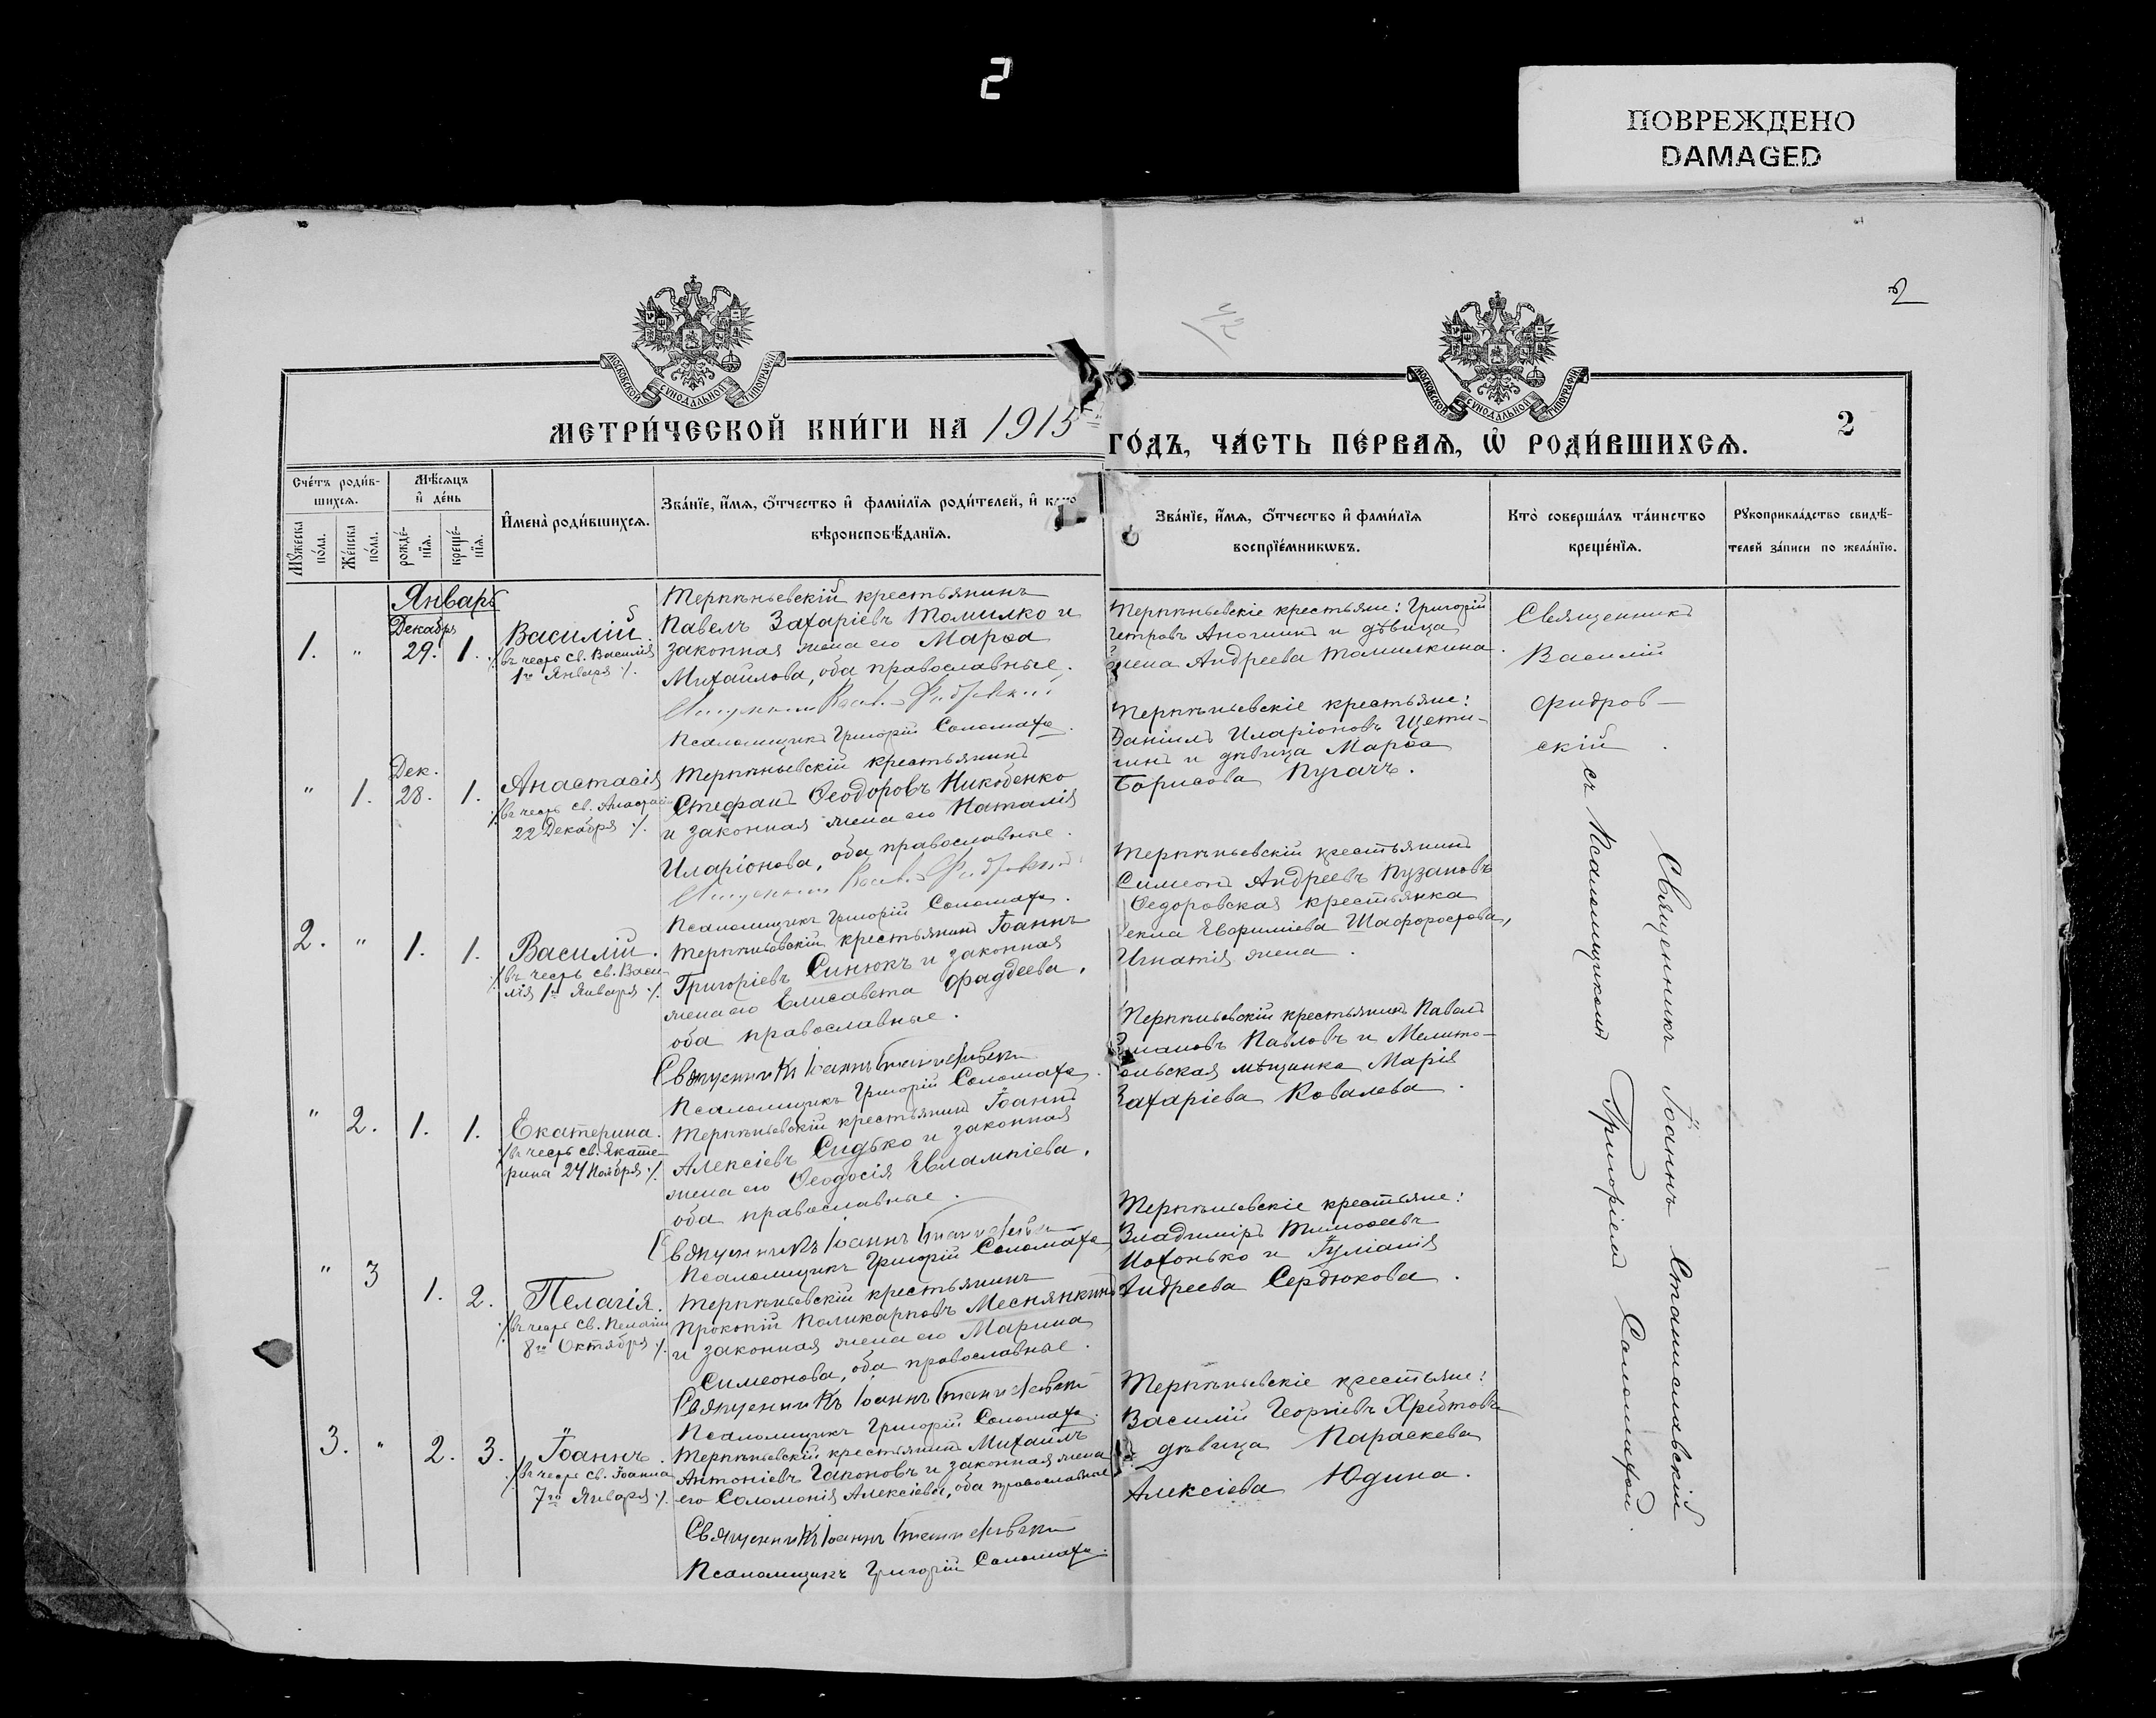 2
ПОВРЕЖДЕНО
DAMAGED
2
МОСКОВСКОЙ СѴНОДАЛЬНОЙ ТИПОГРАФІИ
МОСКОВСКОЙ СѴНОДАЛЬНОЙ ТИПОГРАФІИ
МЕТРИ́ЧЕСКОЙ КНИ́ГИ НА 1915
ГО́ДЪ, ЧА́СТЬ ПЕ́РВАѦ, Ѡ҆ РОДИ́ВШИХСѦ.
2
Сче́тъ роди́в-
шихсѧ.
Мѣ́сѧцъ
и҆ де́нь
Мꙋ́жеска
по́ла.
Же́нска
по́ла.
рожде́-
нїѧ.
креще́-
нїѧ.
И҆мена̀ роди́вшихсѧ.
Зва́нїе, и҆́мѧ, ѻ҆́тчество и҆ фами́лїѧ роди́телей, и҆
вѣроисповѣ́данїѧ.
Зва́нїе, и҆́мѧ, ѻ҆́тчество и҆ фами́лїѧ
воспрїе́мникѡвъ.
Кто̀ соверша́лъ та́инство
креще́нїѧ.
Рꙋкоприкла́дство свидѣ́-
телей за́писи по жела́нїю.
Январь
1. " Декабря 29. 1.
Василій.
/въ честь св. Василія
1го Января /.
Терпѣньевскій крестьянинъ
Павелъ Захаріевъ Томилко и
законная жена его Марѳа
Михайлова, оба православные.
Псаломщикъ Григорій Соломаха.
Терпѣньевскіе крестьяне: Григорій
Петровъ Аношинъ и дѣвица
Андреева Томилкина.
Священникъ
Василій
Фидров-
скій.
съ Псаломщикомъ Григоріемъ Соломахой.
" 1. Дек. 28. 1.
Анастасія
/въ честь св. Анастасіи
22 Декабря /.
Терпѣньевскій крестьянинъ
Стефанъ Ѳеодоровъ Никобенко
и законная жена его Наталія
Иларіонова, оба православные.
Псаломщикъ Григорій Соломаха.
Терпѣньевскіе крестьяне:
Даніилъ Иларіоновъ Щети-
нинъ и дѣвица Марѳа
Борисова Пугачъ.
2. " 1. 1.
Василій.
/въ честь св. Васи-
лія 1го Января /.
Терпѣньевскій крестьянинъ Іоаннъ
Григоріевъ Синюкъ и законная
жена его Елисавета Фаддеева,
оба православные.
Священникъ Іоаннъ Станиславскій
Псаломщикъ Григорій Соломаха.
Терпѣньевскій крестьянинъ
Симеонъ Андреевъ Пузановъ
Ѳедоровская крестьянка
Ѳекла Евфиміева Шафоростова,
Игнатія жена.
Священникъ Іоаннъ Станиславскій
" 2. 1. 1.
Екатерина.
/въ честь св. Екате-
рины 24 Ноября /.
Терпѣньевскій крестьянинъ Іоаннъ
Алексіевъ Сидько и законная
жена его Ѳеодосія Евлампіева,
оба православные.
Священникъ Іоаннъ Станиславскій
Псаломщикъ Григорій Соломаха
Терпѣньевскій крестьянинъ Павелъ
Павловъ и Мелито-
польская мѣщанка Марія
Захаріева Ковалева.
" 3 1. 2.
Пелагія.
/въ честь св. Пелагіи
8го Октября /.
Терпѣньевскій крестьянинъ
Прокопій Поликарповъ Меснянкинъ
и законная жена его Марина
Симеонова, оба православные.
Священникъ Іоаннъ Станиславскій
Псаломщикъ Григорій Соломаха.
Терпѣньевскіе крестьяне:
Владиміръ Тимоѳеевъ
Мохонько и Іуліанія
Андреева Сердюкова.
3. " 2. 3.
Іоаннъ.
/въ честь св. Іоанна
7го Января /.
Терпѣньевскій крестьянинъ Михаилъ
Антоніевъ Гапоновъ и законная жена
его Соломонія Алексіева, оба православные
Священникъ Іоаннъ Станиславскій
Псаломщикъ Григорій Соломаха.
Терпѣньевскіе крестьяне:
Василій Георгіевъ Хребтовъ
и дѣвица Параскева
Алексіева Юдина.